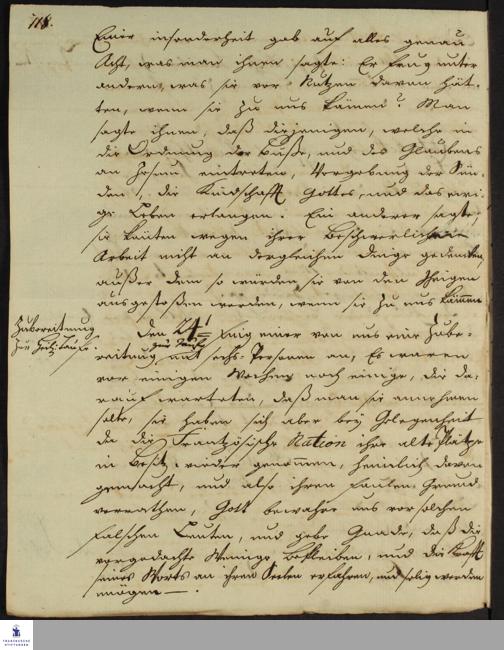 118.
Einer insonderheit gab auf alles genau
Acht, was man ihnen sagte: Er frug unter
andern, was sie vor Nutzen davon hät-
ten, wenn sie zu uns kämen? Man
sagte ihnen, daß diejenigen, welche in
die Ordnung der Buße, und des Glaubens
an Jesum eintreten, Vergebung der Sün-
den, die Kindschafft Gottes, und das ewi-
ge Leben erlangen. Ein anderer sagte,
sie könten wegen ihrer Beschwerlichen
Arbeit nicht an dergleichen Dinge gedencken,
außer dem so würden sie von den Ihrigen
ausgestoßen werden, wenn sie zu uns kämen
Zubereitung
zur Heil: Taufe.
Den 24t fing einer von uns eine Zube-
zur Taufe
reitung mit sechs Personen an, Es waren
vor einigen Wochen noch einige, die da-
rauf warteten, daß man sie annehmen
solte, sie haben sich aber bey Gelegenheit
da die Frantzösische Nation ihre alte Plätze
in Besitz wieder genommen, heimlich davon
gemacht, und also ihren faulen Grund
verrathen, Gott bewahre uns vor solchen
falschen Leuten, und gebe Gnade, daß die
vorgedachte Wenige bekleiben, und die Krafft
seines Worts an ihren Seelen erfahren, und selig werden
mögen.
FRANCKESCHE
STIFTUNGEN